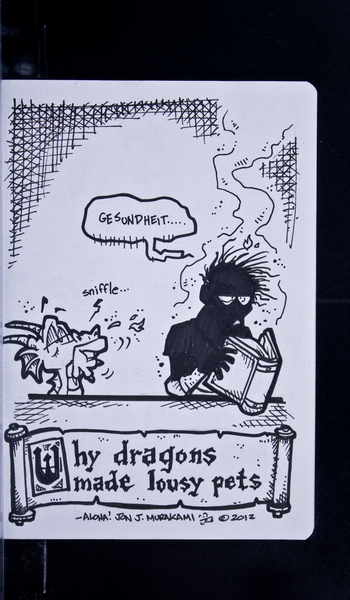 GESUNDHEIT....
sniffle...
Why dragons
made lousy pets
-ALOHA! JON J. MURAKAMI © 2012